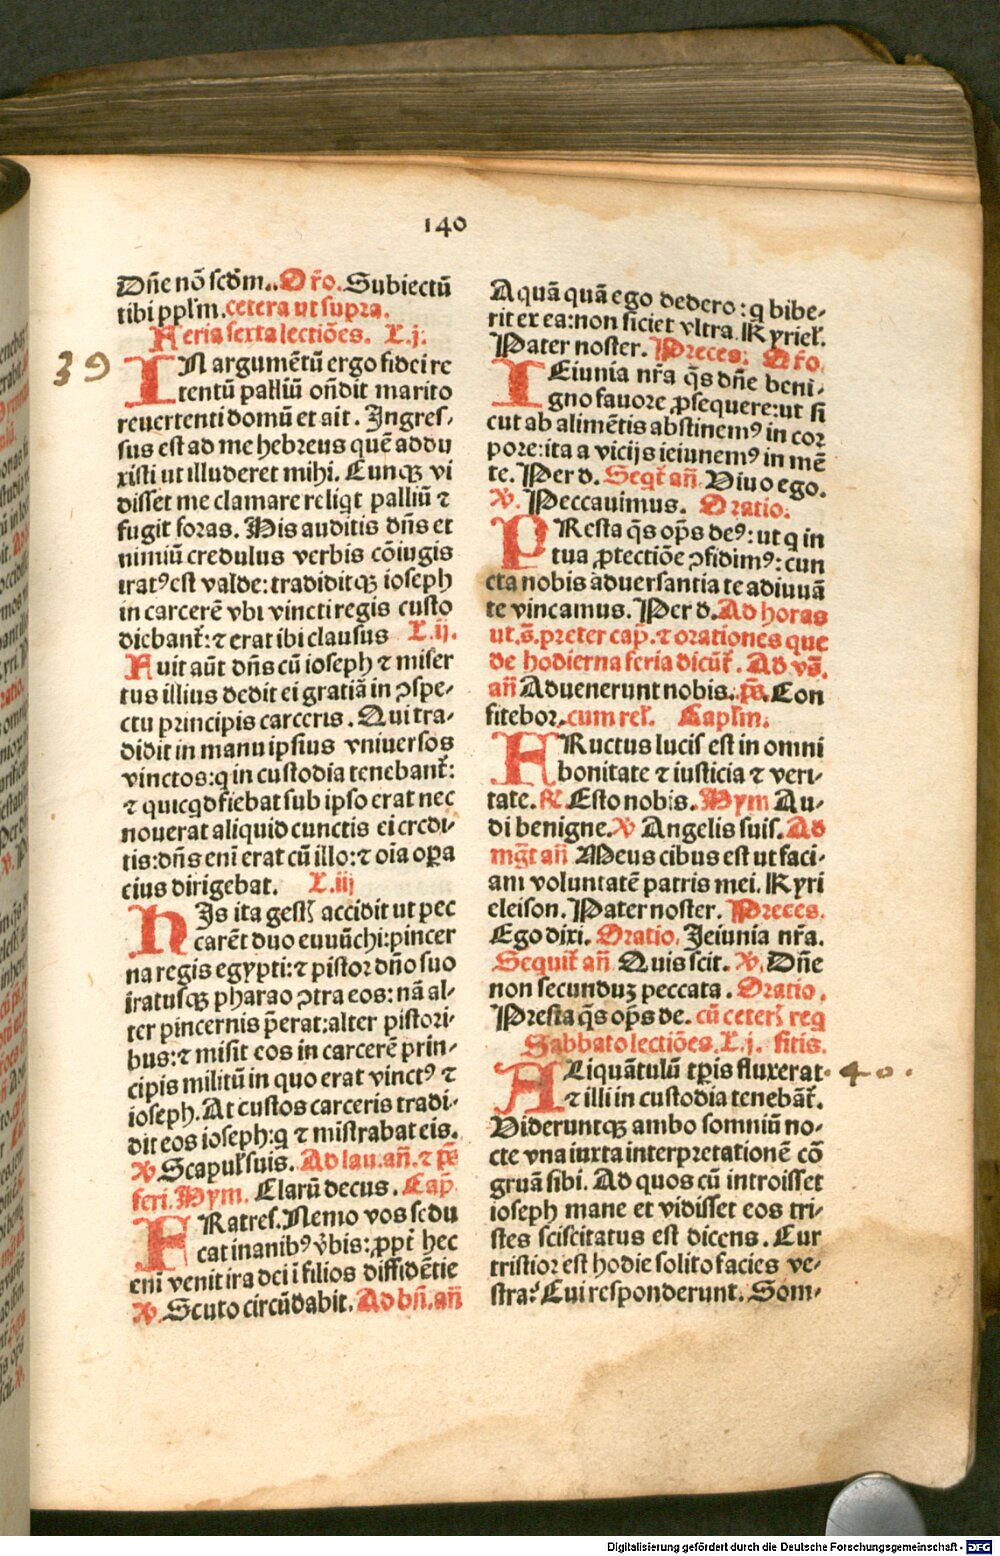 140
Dñe nõ scd̃m.. Or̃o. Subiectũ
tibi ppl'm. cetera ut supra.
Feria sexta lectiões. L.j.
39
IN argumẽtũ ergo fidei re
tentũ palliũ oñdit marito
reuertenti domũ et ait. Ingres-
sus est ad me hebreus quẽ addu
xisti ut illuderet mihi. Cunqꝫ vi
disset me clamare reliq̃t palliũ ⁊
fugit foras. His auditis dñs et
nimiũ credulus verbis cõiugis
iratꝰ est valde: tradiditqꝫ ioseph
in carcerẽ vbi vincti regis custo
diebant̃: ⁊ erat ibi clausus L.ij.
Fuit aũt dñs cũ ioseph ⁊ miser
tus illius dedit ei gratiã in ꝯspe-
ctu principis carceris. Qui tra-
didit in manu ipsius vniuersos
vinctos: q̃ in custodia tenebant̃:
⁊ quicq̃d fiebat sub ipso erat nec
nouerat aliquid cunctis ei credi-
tis: dñs eni erat cũ illo: ⁊ oĩa oꝑa
eius dirigebat. L.iij
HIs ita gest̃ accidit ut pec
carẽt duo euuũchi: pincer
na regis egypti: ⁊ pistor dño suo
iratusqꝫ pharao ꝯtra eos: nã al-
ter pincernis p̃erat: alter pistori-
bus: ⁊ misit eos in carcerẽ prin-
cipis militũ in quo erat vinctꝰ ⁊
ioseph. At custos carceris tradi-
dit eos ioseph: q̃ ⁊ mĩstrabat eis.
℣. Scapul' suis. Ad lau. añ. ⁊ p̃s
feri. Hym. Clarũ decus. Cap̃
FRatres. Nemo vos sedu
cat inanibꝰ v̓bis: ꝓpt̃ hec
eni venit ira dei ĩ filios diffidẽtie
℣. Scuto circũdabit. Ad bñ. añ
Aquã quã ego dedero: q̃ bibe-
rit ex ea: non siciet vltra. Kyriel'.
Pater noster. Preces. Or̃o.
IEiunia nr̃a q̃s dñe beni-
gno fauore ꝓsequere: ut si
cut ab alimẽtis abstinemꝰ in cor
pore: ita a vicijs ieiunemꝰ in mẽ
te. Per d. Seqt̃ añ Viuo ego.
℣. Peccauimus. Oratio.
PResta q̃s op̃s deꝰ: ut q̃ in
tua ꝓtectiõe ꝯfidimꝰ: cun
cta nobis aduersantia te adiuuã
te vincamus. Per d. Ad horas
ut.s̃. preter cap̃. ⁊ orationes que
de hodierna feria dicũt̃. Ad vs̃.
añ Aduenerunt nobis. p̃s. Con
fitebor. cum rel'. Capl'm.
FRuctus lucis est in omni
bonitate ⁊ iusticia ⁊ veri-
tate. ℟. Esto nobis. Hym Au-
di benigne. ℣ Angelis suis. Ad
mgt̃ añ Meus cibus est ut faci-
am voluntatẽ patris mei. Kyri
eleison. Pater noster. Preces.
Ego dixi. Oratio. Jeiunia nr̃a.
Sequit̃ añ Quis scit. ℣. Dñe
non secunduꝫ peccata. Oratio.
Presta q̃s op̃s de. cũ ceter̃ req̃
Sabbato lectiões. L.j. sitis.
ALiquãtulũ tp̃is fluxerat
40.
⁊ illi in custodia tenebãt̃.
Videruntqꝫ ambo somniũ no-
cte vna iuxta interpretationẽ cõ
gruã sibi. Ad quos cũ introisset
ioseph mane et vidisset eos tri-
stes sciscitatus est dicens. Cur
tristior est hodie solito facies ve-
stra? Cui responderunt. Som-
Digitalisierung gefördert durch die Deutsche Forschungsgemeinschaft - DFG